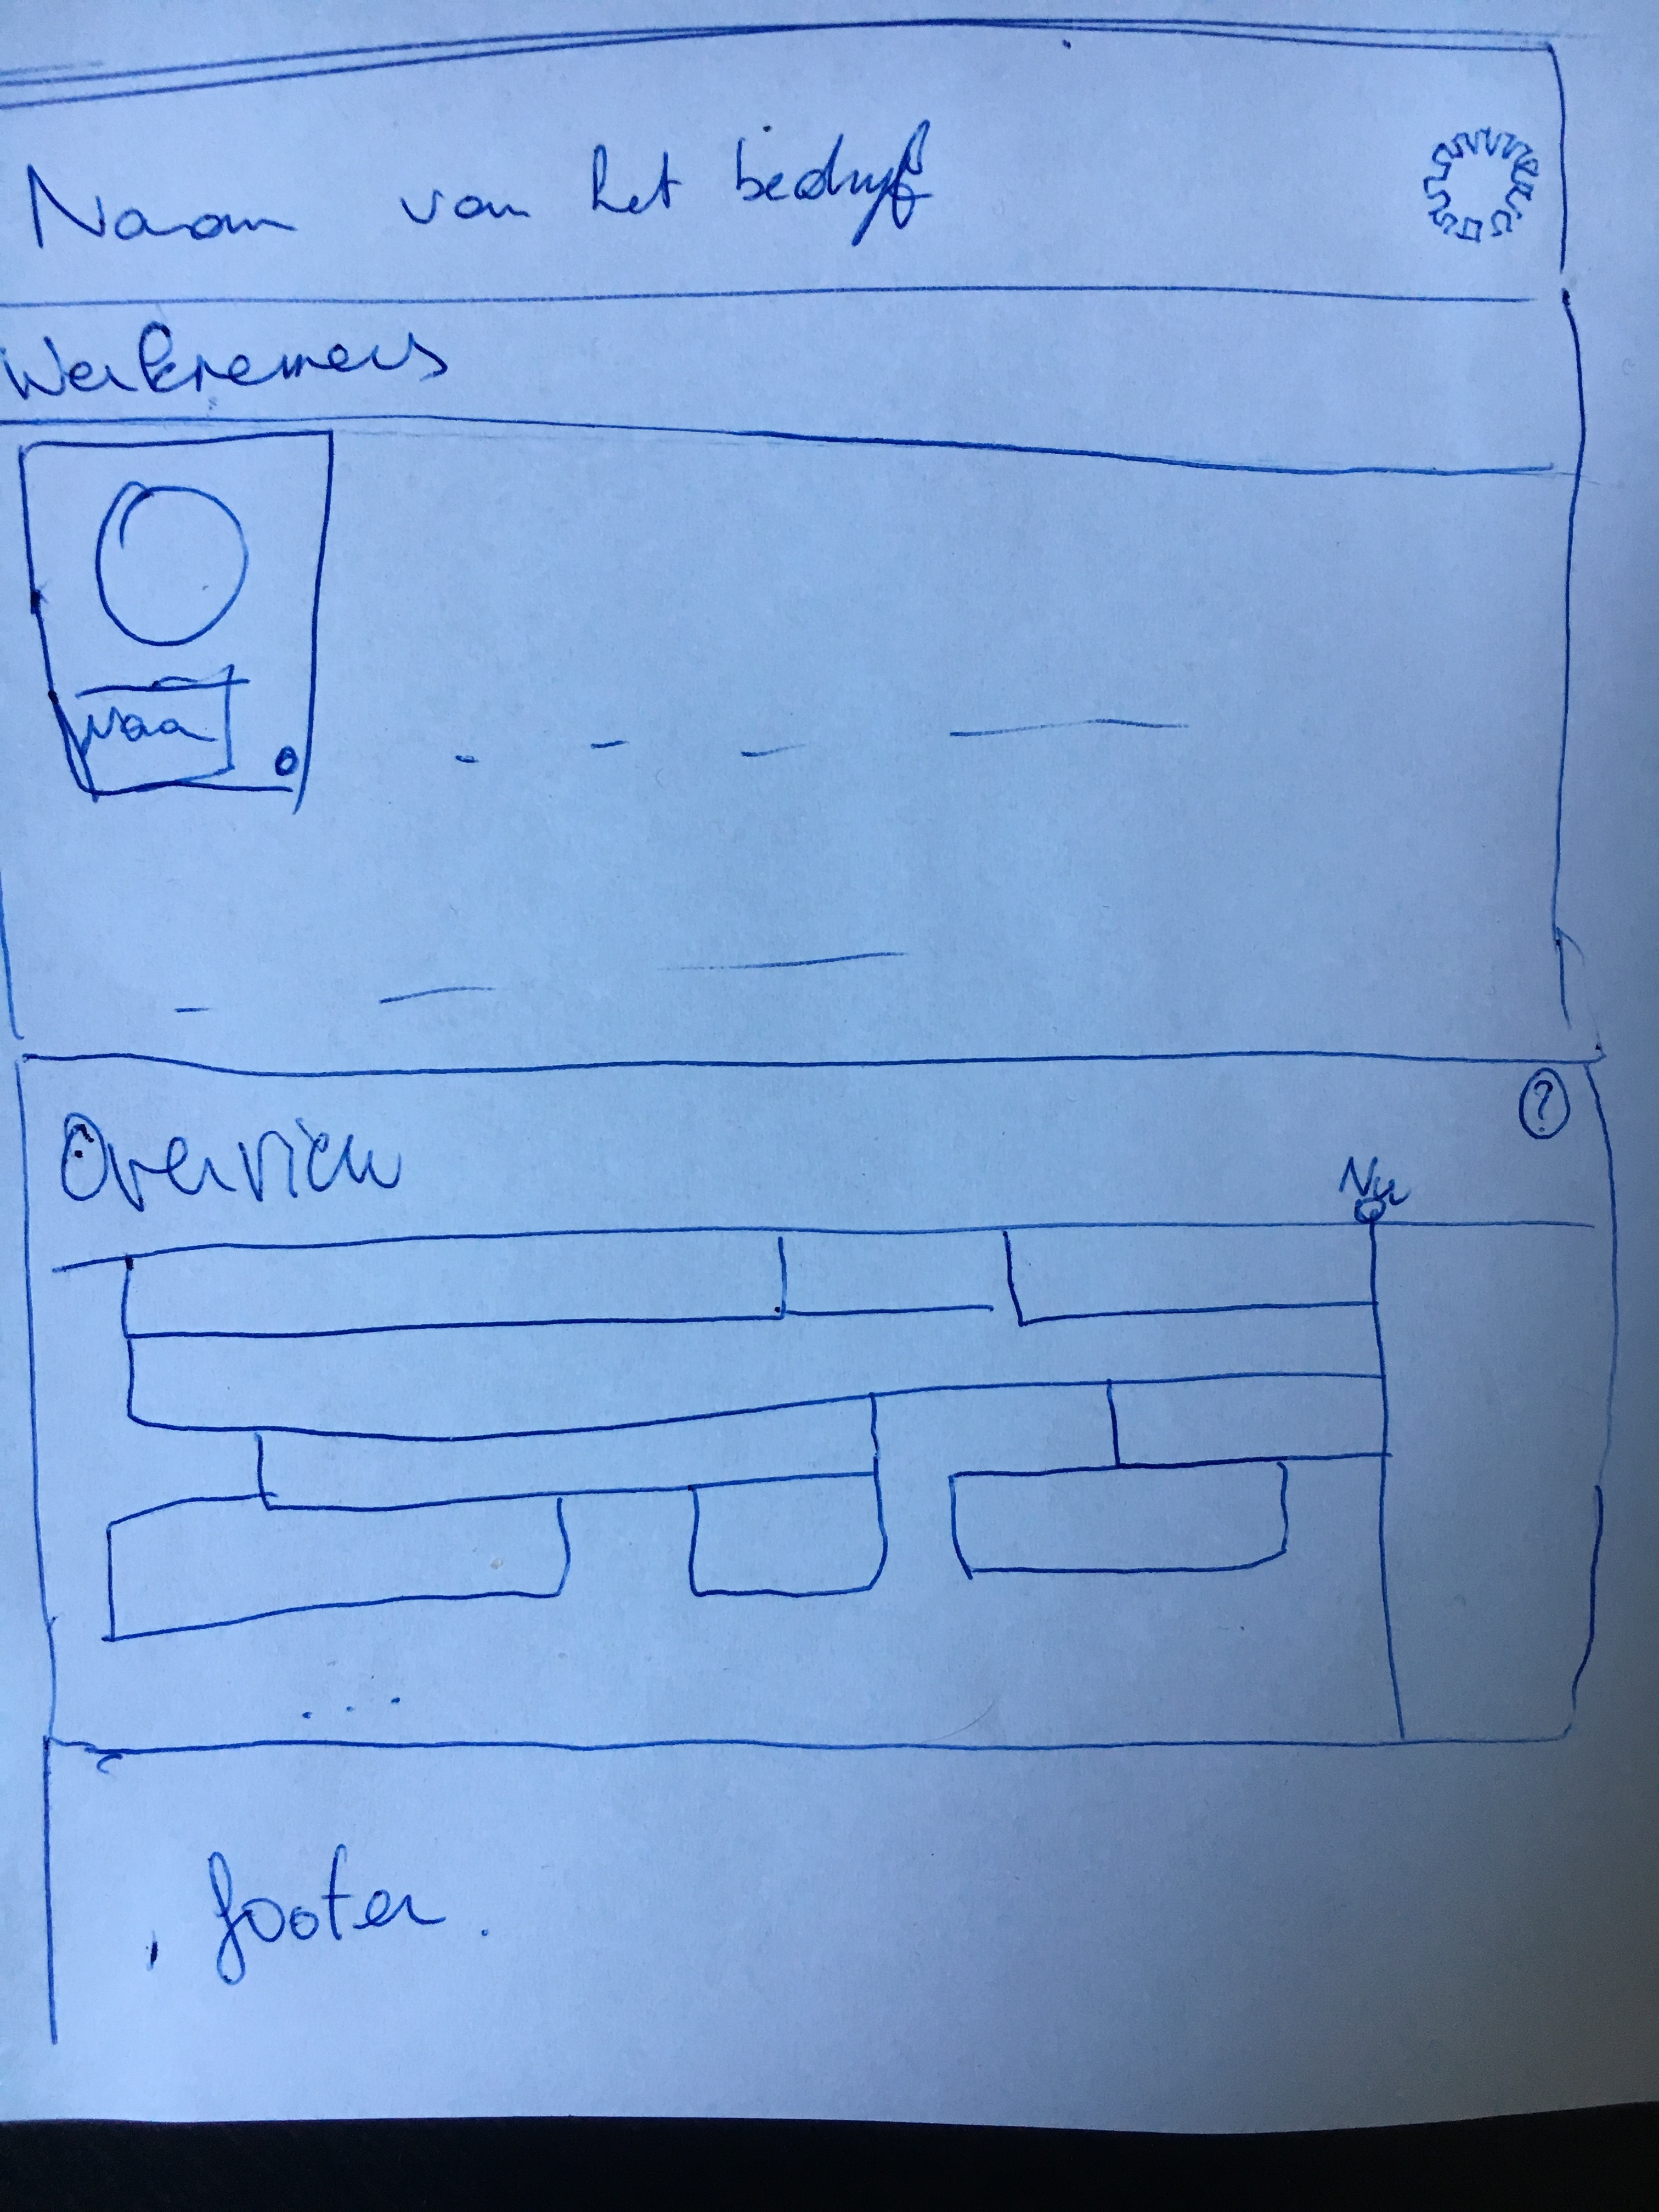 Naam van het bedrijf
Werknemers
Naa
Overview
?
Nu
...
footer.